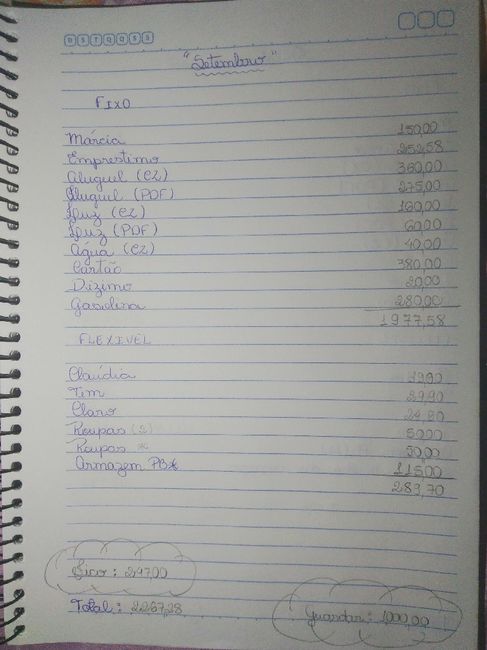 D S T Q Q S S
"Setembro"
FIXO
Márcia 150,00
Emprestimo 252,58
Aluguel (CZ) 360,00
Aluguel (PDF) 275,00
Luz (CZ) 160,00
Luz (PDF) 60,00
Água (CZ) 40,00
Cartão 380,00
Dizimo 20,00
Gasolina 280,00
1977,58
FLEXIVEL
Claúdia 19,90
Tim 29,90
Claro 24,90
Roupas (2) 50,00
Roupas * 50,00
Armazem PB* 115,00
289,70
: 297,00
Total: 2267,28
Guardar: 1000,00